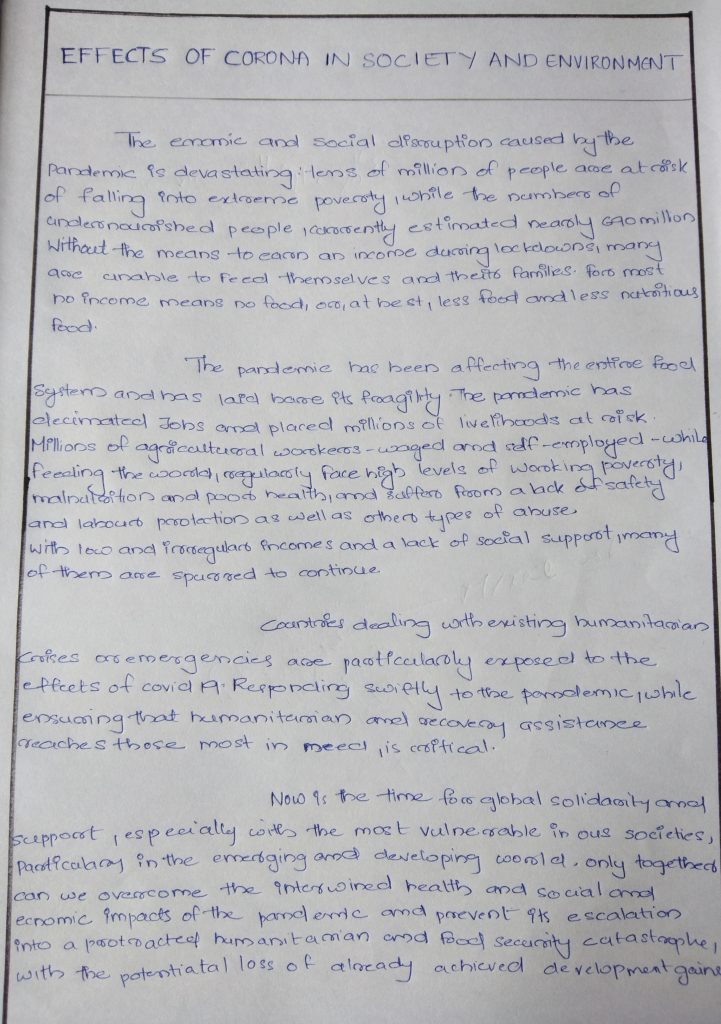 EFFECTS OF CORONA IN SOCIETY AND ENVIRONMENT
The enomic and social disruption caused by the
Pandemic is devastating: tens of million of people are at risk
of falling into extreme poverty, while the number of
undernourished people, currently estimated nearly 690 million
Without the means to earn an income during lockdowns, many
are unable to feed themselves and their families. for most
no income means no food, or, at best, less food and less nutritious
food.
The pandemic has been affecting the entire food
System and has laid bare its fragility. The pandemic has
decimated Jobs and placed millions of livelihoods at risk.
Millions of agricultural workers - waged and self-employed - while
feeding the world, regularly face high levels of working poverty,
malnutrition and poor health, and suffer from a lack of safety
and labour protection as well as other types of abuse.
With low and irregular incomes and a lack of social support, many
of them are spurred to continue.
Countries dealing with existing humanitarian
Crises or emergencies are particularly exposed to the
effects of covid 19. Responding swiftly to the pandemic, while
ensuring that humanitarian and recovery assistance
reaches those most in need, is critical.
Now is the time for global solidarity and
support, especially with the most vulnerable in ous societies,
Particulary in the emerging and developing world. only together
can we overcome the interwined health and social and
ecnomic impacts of the pandemic and prevent its escalation
into a protracted humanitarian and food security catastrophe,
with the potentiatal loss of already achieved development gains